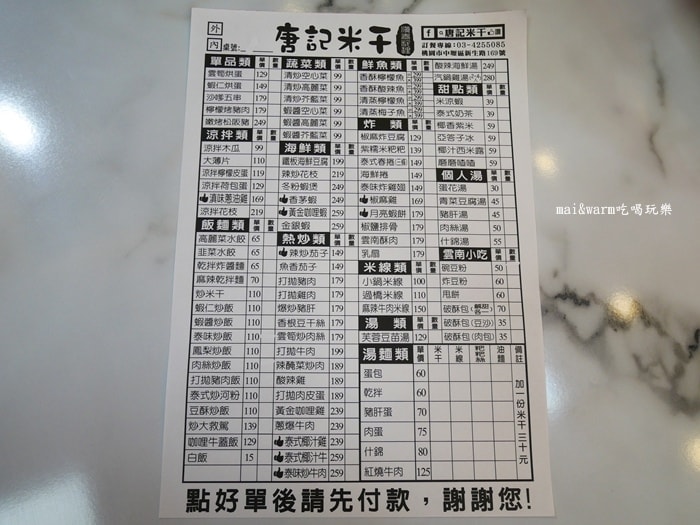 外
內
桌號:
唐記米干
滇緬料理
f 唐記米干
訂餐專線:03-4255085
桃園市中壢區新生路169號
單品類 單價 數量
雲筍烘蛋 129
蝦仁烘蛋 149
沙嗲五串 179
檸檬烤豬肉 179
嫩烤松阪豬 249
涼拌類 單價 數量
涼拌木瓜 99
大薄片 110
涼拌檸檬皮蛋 119
涼拌荷包蛋 129
滇味蔥油雞 169
涼拌花枝 219
飯麵類 單價 數量
高麗菜水餃 65
韭菜水餃 65
乾拌炸醬麵 65
麻辣乾拌麵 70
炒米干 110
蝦仁炒飯 110
蝦醬炒飯 110
泰味炒飯 110
鳳梨炒飯 110
肉絲炒飯 110
打拋豬肉飯 110
泰式炒河粉 110
豆酥炒飯 110
炒大救駕 139
咖哩牛蓋飯 129
白飯 15
蔬菜類 單價 數量
清炒空心菜 99
清炒高麗菜 99
清炒芥藍菜 99
蝦醬空心菜 99
蝦醬高麗菜 99
蝦醬芥藍菜 99
海鮮類 單價 數量
鐵板海鮮豆腐 199
辣炒花枝 219
冬粉蝦煲 249
香茅蝦 249
黃金咖哩蝦 259
金銀蝦 259
熱炒類 單價 數量
辣炒茄子 149
魚香茄子 149
打拋豬肉 179
打拋雞肉 179
爆炒豬肝 179
香根豆干絲 179
雲筍炒肉絲 179
打拋牛肉 199
辣醃菜炒肉 189
酸辣雞 189
打拋肉皮蛋 189
黃金咖哩雞 239
蔥爆牛肉 209
泰式椰汁雞 239
泰式椰汁牛 259
泰味炒牛肉 259
鮮魚類 單價 數量
香酥檸檬魚
香酥酸辣魚
清蒸檸檬魚
清蒸梅子魚
炸類 單價 數量
椒麻炸豆腐 129
紫糯米粑粑 139
泰式春捲(三條) 149
海鮮捲 149
泰味炸雞翅 149
椒麻雞 169
月亮蝦餅 179
椒鹽排骨 179
雲南酥肉 179
乳扇 179
米線類 單價 數量
小鍋米線 100
過橋米線 110
麻辣牛肉米線 150
湯類 單價 數量
芙蓉豆苗湯 129
湯麵類 單價 米干 米線 粑粑絲 油麵 備註
蛋包 60
乾拌 60
豬肝蛋 70
肉蛋 75
什錦 80
紅燒牛肉 125
加一份米干三十元
酸辣海鮮湯 249
汽鍋雞湯 280
甜點類 單價 數量
米涼蝦 39
泰式奶茶 39
椰香紫米 59
亞答子冰 59
椰汁西米露 59
磨磨喳喳 59
個人湯 單價 數量
蛋花湯 30
青菜豆腐湯 45
豬肝湯 45
肉絲湯 50
什錦湯 55
雲南小吃 單價 數量
豌豆粉 50
炸豆粉 60
甩餅 60
破酥包 70
破酥包(豆沙) 35
破酥包(肉包) 35
點好單後請先付款，謝謝您!
mai&warm吃喝玩樂